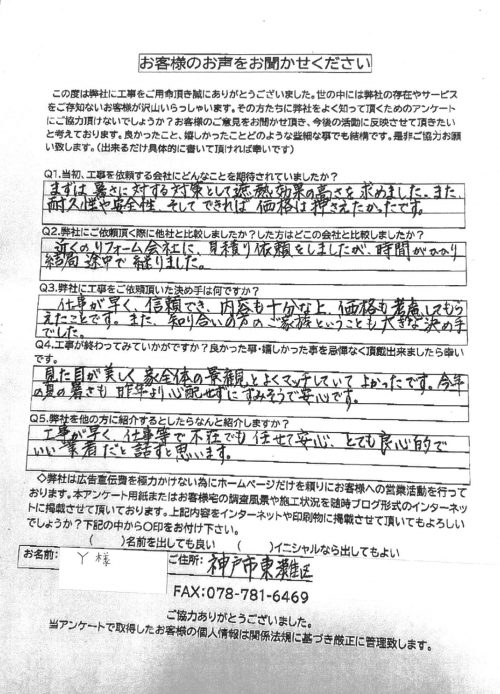 お客様のお声をお聞かせください
この度は弊社に工事をご用命頂き誠にありがとうございました。世の中には弊社の存在やサービス
をご存知ないお客様が沢山いらっしゃいます。その方たちに弊社をよく知って頂くためのアンケート
にご協力頂けないでしょうか？お客様のご意見をお聞かせ頂き、今後の活動に反映させて頂きたい
と考えております。良かったこと、嬉しかったことどのような些細な事でも結構です。是非ご協力お願
い致します。（出来るだけ具体的に書いて頂ければ幸いです）
Q1.当初、工事を依頼する会社にどんなことを期待されていましたか？
まずは暑さに対する対策として遮熱効果の高さを求めました。また、
耐久性や安全性、そしてできれば価格は押さえたかったです。
Q2.弊社にご依頼頂く際に他社と比較しましたか？した方はどこの会社と比較しましたか？
近くのリフォーム会社に、見積り依頼をしましたが、時間がかかり
結局途中で断りました。
Q3.弊社に工事をご依頼頂いた決め手は何ですか？
仕事が早く、信頼でき、内容も十分な上、価格も考慮してもら
えたことです。また、知り合いの方のご家族ということも大きな決め手
でした。
Q4.工事が終わってみていかがですか？良かった事・嬉しかった事を忌憚なく頂戴出来ましたら幸い
です。
見た目が美しく家全体の景観とよくマッチしていてよかったです。今年
の夏の暑さも昨年より心配せずにすみそうで安心です。
Q5.弊社を他の方に紹介するとしたらなんと紹介しますか？
工事が早く、仕事等で不在でも任せて安心、とても良心的で
いい業者だと話すと思います。
◇弊社は広告宣伝費を極力かけない為にホームページだけを頼りにお客様への営業活動を行って
おります。本アンケート用紙またはお客様宅の調査風景や施工状況を随時ブログ形式のインターネッ
トに掲載させて頂いております。上記内容をインターネットや印刷物に掲載させて頂いてもよろしい
でしょうか？下記の中から〇印をお付け下さい。
（　　）名前を出しても良い　（　　）イニシャルなら出してもよい
お名前: Y様 ご住所: 神戸市東灘区
FAX:078-781-6469
ご協力ありがとうございました。
当アンケートで取得したお客様の個人情報は関係法規に基づき厳正に管理致します。